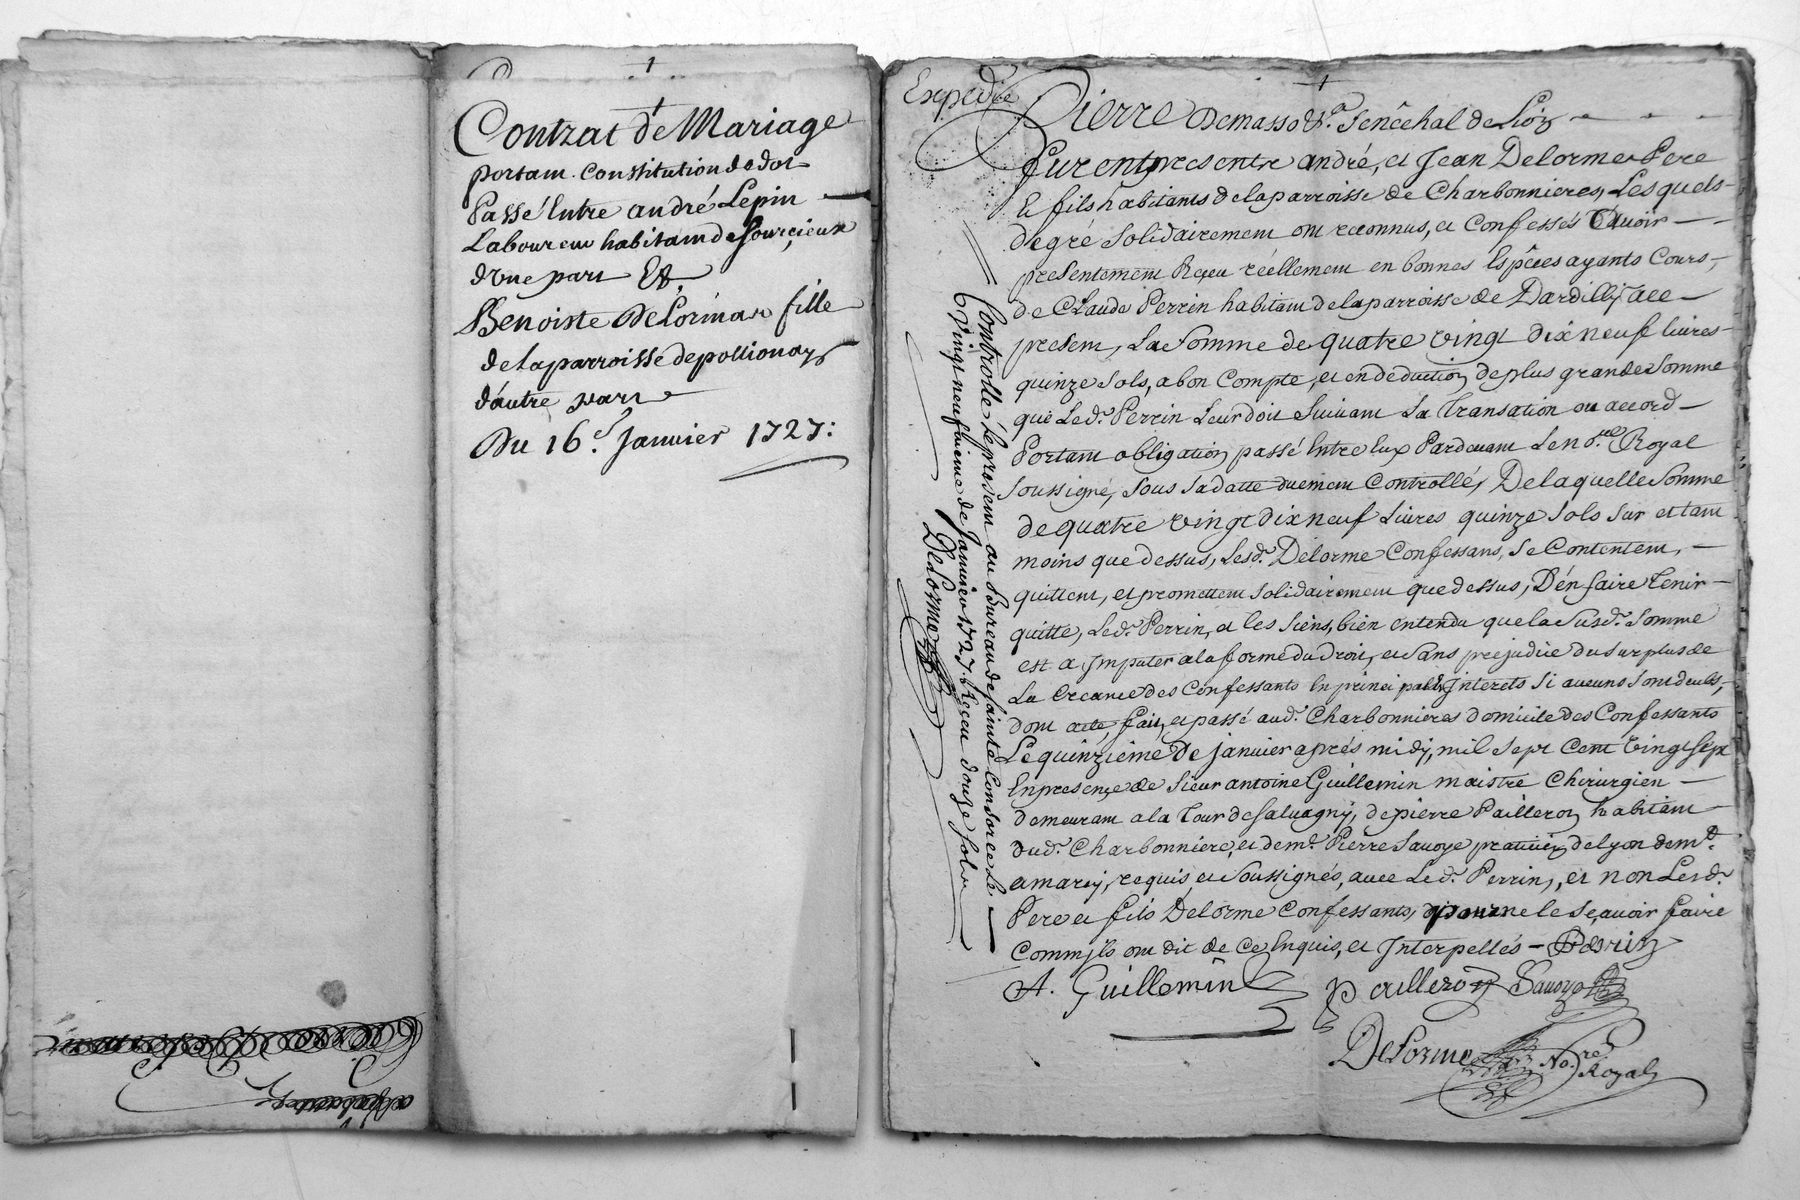 Contrat de Mariage
portant constitution de dot
Passé Entre andré Lepin
Laboureur habitant de Sourcieux
d'une part Et
Benoiste DeLorme fille
de la parroisse de pollionay
d'autre part
Du 16e. Janvier 1727:
Expedié
Pierre Demasso &ra. Senéchal de Lion
Furent presentz andré, et Jean Delorme Pere
Et fils habitants de la parroisse de Charbonnieres, Lesquels
de gré Solidairement ont reconnus, et Confessés avoir
presentement Reçeu réellement en bonnes Espéces ayants Cours,
de Claude Perrin habitant de la parroisse de Dardilly, ace
present, La Somme de quatre vingt dix neuf livres
quinze Sols, a bon Compte, et en deduction de plus grande Somme
que Led. Perrin Leur doit Suivant La Transation ou accord
Portant obligation passé Entre Eux Pardevant Le nore. Royal
Soussigné, Sous Sa datte duement Controllé, De laquelle Somme
de quatre vingt dix neuf Livres quinze Sols sur et tant
moins que dessus, Lesd. Delorme Confessans, Se Contentent,
quittent, et promettent Solidairement que dessus, D'en faire tenir
quitte, Led. Perrin, et les Siens, bien entendu que la Susd. Somme
est a Jmputer a la forme du Droit, et Sans prejudice du Surplus de
La Creance des Confessants En principal Jnterets Si aucuns Sont deubs,
dont acte, fait, et passé aud. Charbonnieres domicile des Confessants
Le quinzième de janvier aprés midy, mil Sept Cent Vingt Sept
En presence de Sieur antoine Guillemin maistre Chirurgien
demeurant a la Tour de Salvagny, de pierre Pailleron habitant
dud. Charbonniere, et de mr. Pierre Savoye praticien de Lyon demt.
a marcy, requis, et Soussignés, avec Led. Perrin, et non Lesd.
Pere et fils Delorme Confessants, pour ne le Sçavoir faire
Comm'jls ont dit de ce Enquis, et Jnterpellés – Perrin
A. Guillemin Pailleron Savoye
DeLorme Nore. Royal
Controllé Le present au Bureau de Sainte Consorce Le
Vingt neufvieme de Janvier 1727. Receu douze Sols
DeLorme